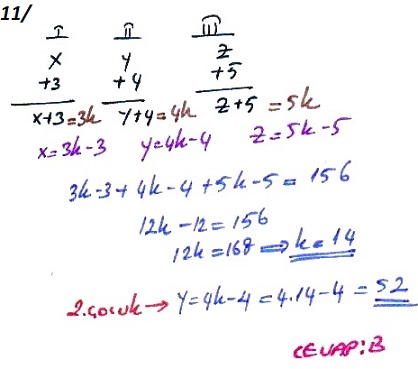 11/
I II III
x y z
+3 +4 +5
x+3=3k y+4=4k z+5=5k
x=3k-3 y=4k-4 z=5k-5
3k-3+4k-4+5k-5=156
12k-12=156
12k=168 ⟹ k=14
2.çocuk → y=4k-4=4.14-4=52
CEVAP:B